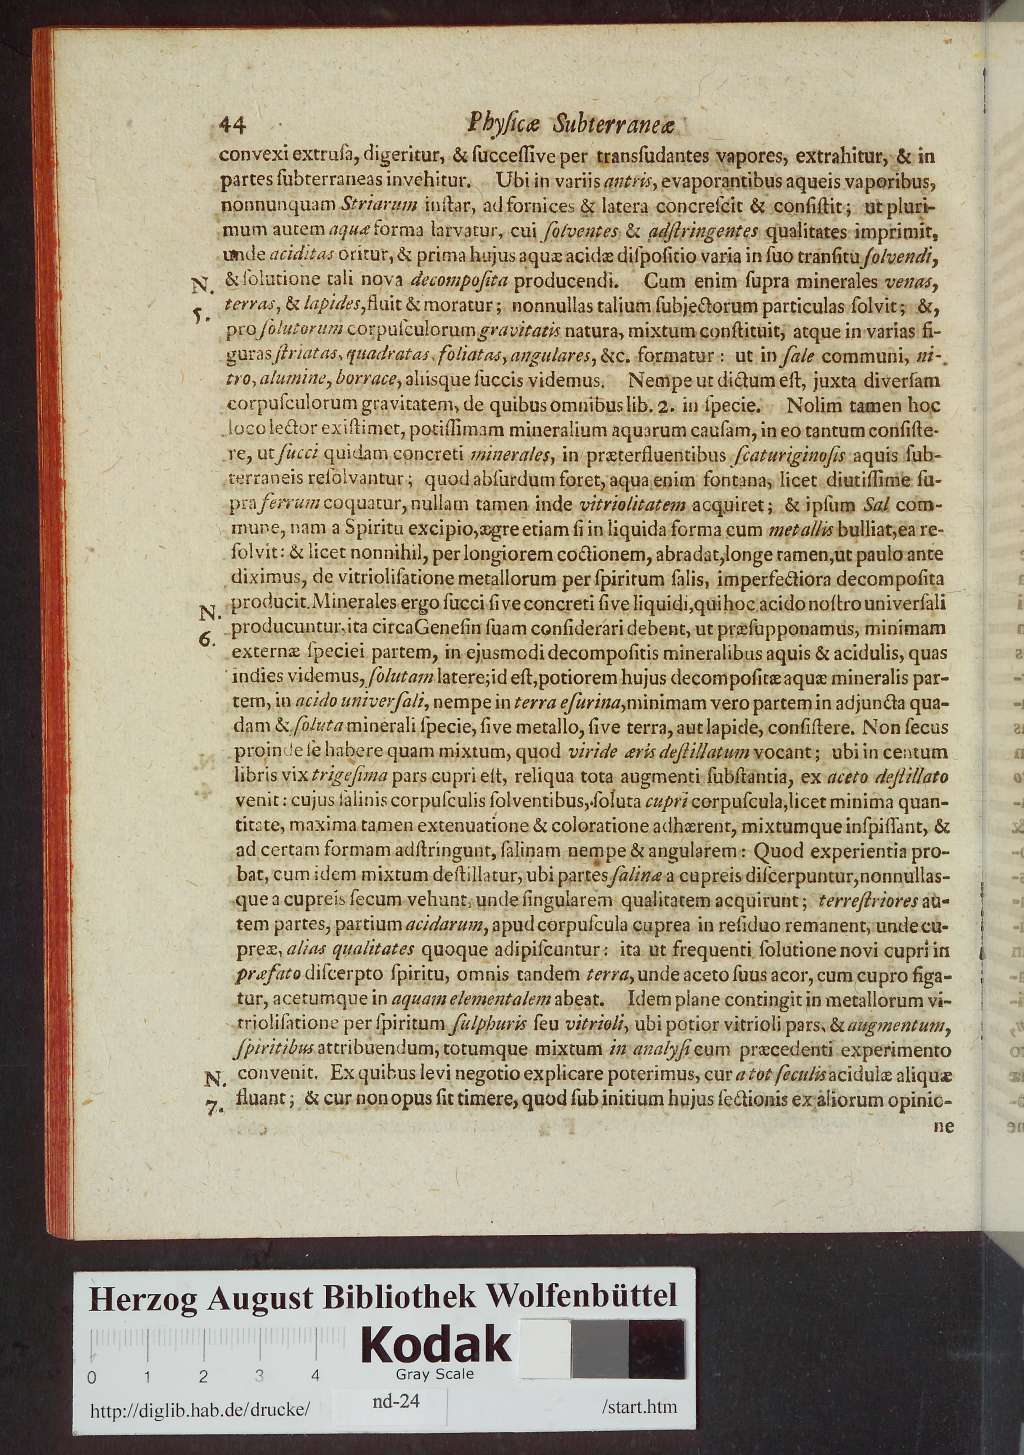 44 Phyſicæ Subterraneæ
convexi extruſa, digeritur, & ſucceſſive per transſudantes vapores, extrahitur, & in
partes ſubterraneas invehitur. Ubi in variis antris, evaporantibus aqueis vaporibus,
nonnunquam Striarum inſtar, ad fornices & latera concreſcit & conſiſtit; ut pluri-
mum autem aquæ forma larvatur, cui ſolventes & adſtringentes qualitates imprimit,
unde aciditas oritur, & prima hujus aquæ acidæ diſpoſitio varia in ſuo tranſitu ſolvendi,
& ſolutione tali nova decompoſita producendi. Cum enim ſupra minerales venas,
N. 5. terras, & lapides, fluit & moratur; nonnullas talium ſubjectorum particulas ſolvit; &,
pro ſolutorum corpuſculorum gravitatis natura, mixtum conſtituit, atque in varias fi-
guras ſtriatas, quadratas, foliatas, angulares, &c. formatur: ut in ſale communi, ni-
tro, alumine, borrace, aliisque ſuccis videmus. Nempe ut dictum eſt, juxta diverſam
corpuſculorum gravitatem, de quibus omnibus lib. 2. in ſpecie. Nolim tamen hoc
loco lector exiſtimet, potiſſimam mineralium aquarum cauſam, in eo tantum conſiſte-
re, ut ſucci quidam concreti minerales, in præterfluentibus ſcaturiginoſis aquis ſub-
terraneis reſolvantur; quod abſurdum foret, aqua enim fontana, licet diutiſſime ſu-
pra ferrum coquatur, nullam tamen inde vitriolitatem acquiret; & ipſum Sal com-
mune, nam a Spiritu excipio, ægre etiam ſi in liquida forma cum metallis bulliat, ea re-
ſolvit: & licet nonnihil, per longiorem coctionem, abradat, longe tamen, ut paulo ante
diximus, de vitrioliſatione metallorum per ſpiritum ſalis, imperfectiora decompoſita
N. 6. producit. Minerales ergo ſucci ſive concreti ſive liquidi, qui hoc acido noſtro univerſali
producuntur, ita circa Geneſin ſuam conſiderari debent, ut præſupponamus, minimam
externæ ſpeciei partem, in ejusmodi decompoſitis mineralibus aquis & acidulis, quas
indies videmus, ſolutam latere; id eſt, potiorem hujus decompoſitæ aquæ mineralis par-
tem, in acido univerſali, nempe in terra eſurina, minimam vero partem in adjuncta qua-
dam & ſoluta minerali ſpecie, ſive metallo, ſive terra, aut lapide, conſiſtere. Non ſecus
proinde ſe habere quam mixtum, quod viride æris deſtillatum vocant; ubi in centum
libris vix trigeſima pars cupri eſt, reliqua tota augmenti ſubſtantia, ex aceto deſtillato
venit: cujus ſalinis corpuſculis ſolventibus, ſoluta cupri corpuſcula, licet minima quan-
titate, maxima tamen extenuatione & coloratione adhærent, mixtumque inſpiſſant, &
ad certam formam adſtringunt, ſalinam nempe & angularem: Quod experientia pro-
bat, cum idem mixtum deſtillatur, ubi partes ſalinæ a cupreis diſcerpuntur, nonnullas-
que a cupreis ſecum vehunt, unde ſingularem qualitatem acquirunt; terreſtriores au-
tem partes, partium acidarum, apud corpuſcula cuprea in reſiduo remanent, unde cu-
preæ, alias qualitates quoque adipiſcuntur: ita ut frequenti ſolutione novi cupri in
præfato diſcerpto ſpiritu, omnis tandem terra, unde aceto ſuus acor, cum cupro figa-
tur, acetumque in aquam elementalem abeat. Idem plane contingit in metallorum vi-
trioliſatione per ſpiritum ſulphuris ſeu vitrioli, ubi potior vitrioli pars, & augmentum,
ſpiritibus attribuendum, totumque mixtum in analyſi cum præcedenti experimento
N. 7. convenit. Ex quibus levi negotio explicare poterimus, cur a tot ſeculis acidulæ aliquæ
fluant; & cur non opus ſit timere, quod ſub initium hujus ſectionis ex aliorum opinio-
ne
Herzog August Bibliothek Wolfenbüttel
Kodak
Gray Scale
0 1 2 3 4
nd-24
http://diglib.hab.de/drucke/ /start.htm